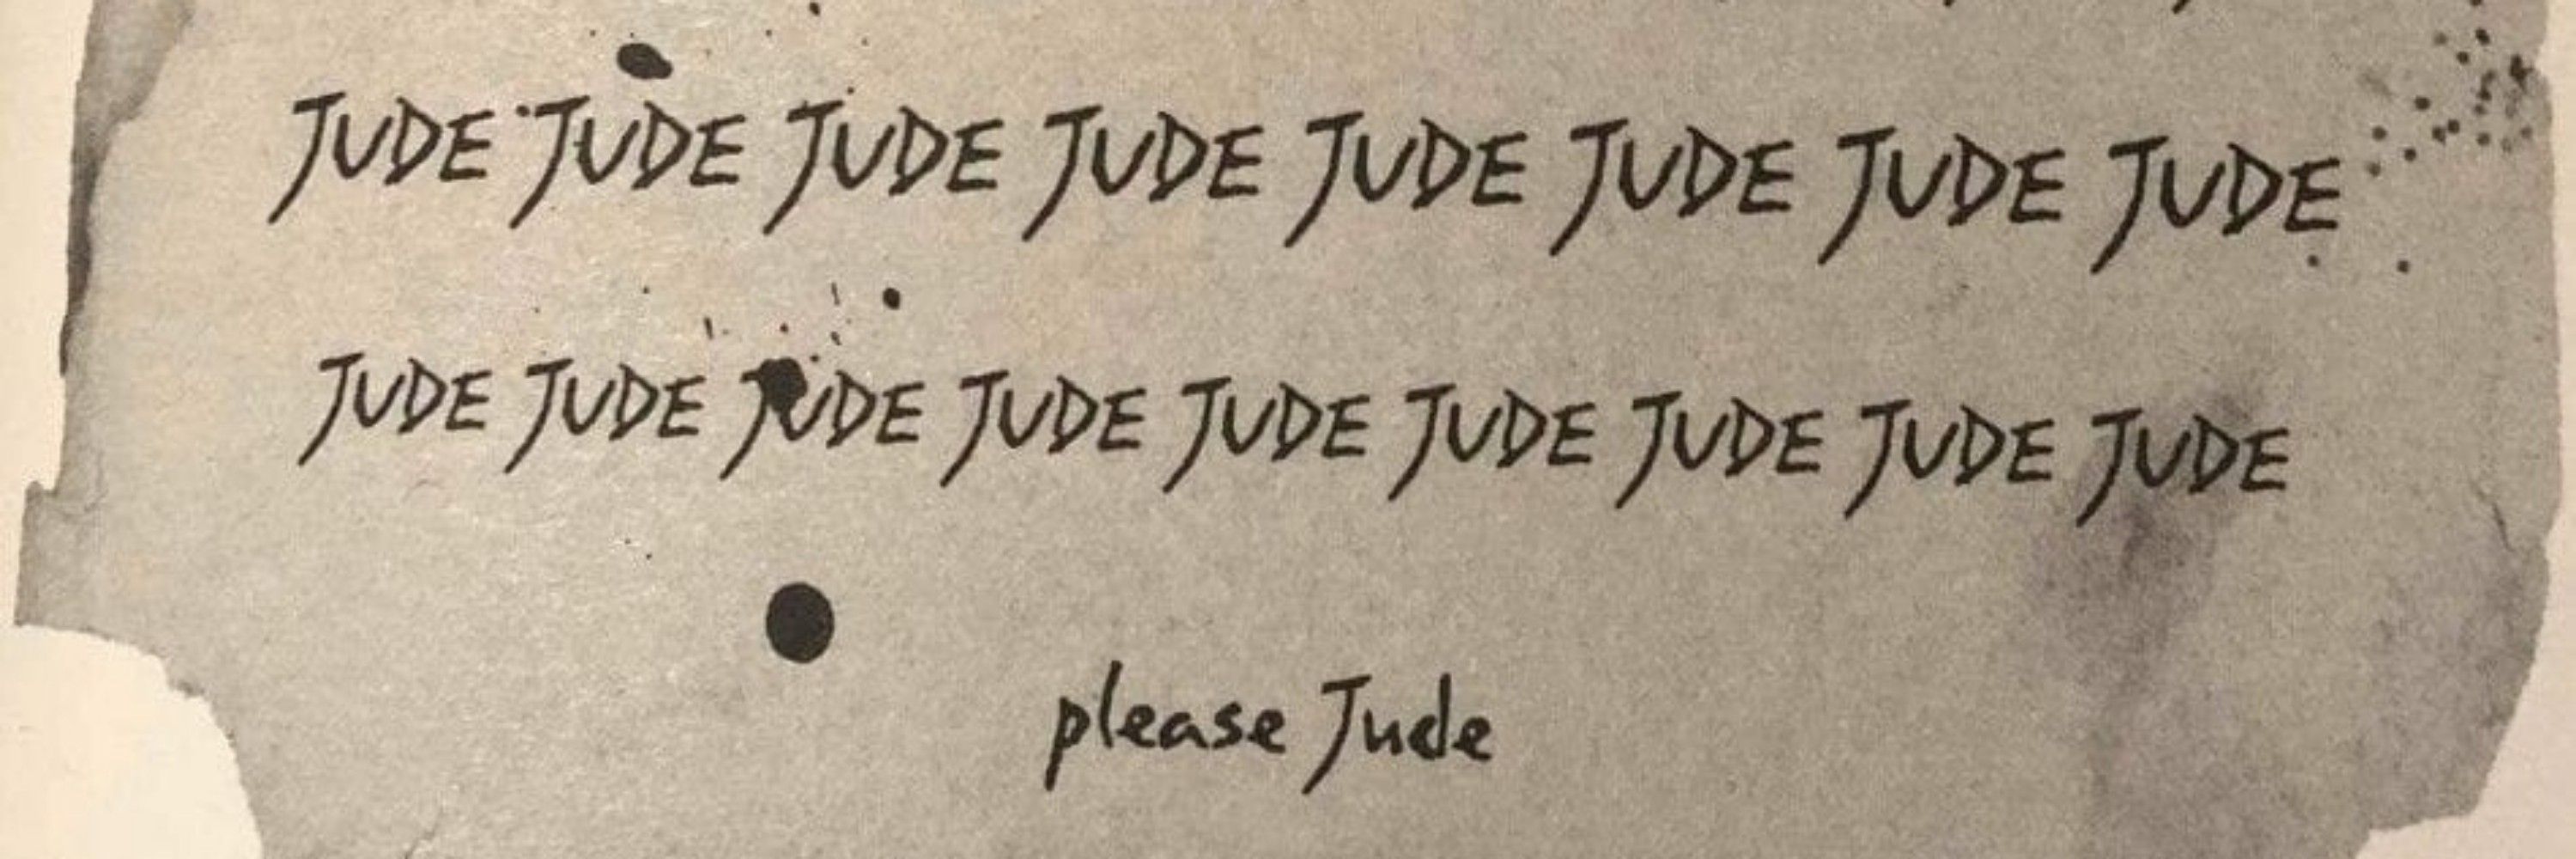 JUDE JUDE JUDE JUDE JUDE JUDE JUDE JUDE
JUDE JUDE JUDE JUDE JUDE JUDE JUDE JUDE JUDE
please Jude